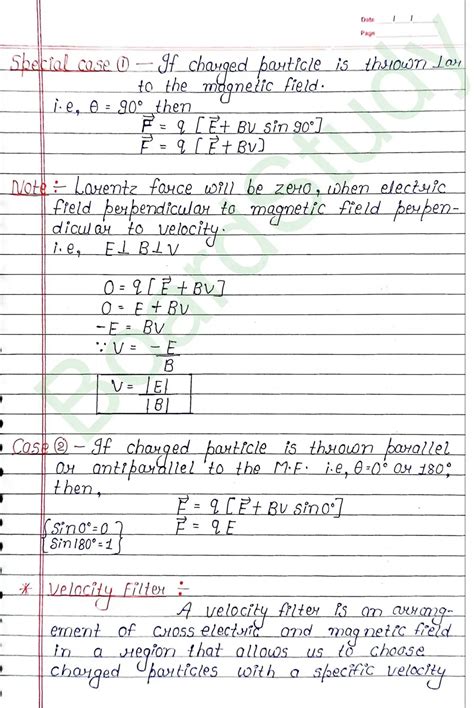 Date / /
Page
Special case ① – If charged particle is thrown ⊥ar
to the magnetic field.
i.e, θ = 90° then
F⃗ = q [E⃗ + BV sin 90°]
F⃗ = q [E⃗ + BV]
Note :- Lorentz force will be zero, when electric
field perpendicular to magnetic field perpen-
dicular to velocity.
i.e, E⊥ B⊥V
0 = q [E⃗ + BV]
0 = E + BV
-E = BV
∵ V = -E
B
V = |E|
|B|
Case ② – If charged particle is thrown parallel
or antiparallel to the M.F. i.e, θ=0° or 180°,
then,
F⃗ = q [E⃗ + BV sin0°]
{Sin0°=0 F⃗ = qE
Sin180°=1}
* Velocity Filter :-
A velocity filter is an arrang-
ement of cross electric and magnetic field
in a region that allows us to choose
charged particles with a specific velocity
BoardStudy